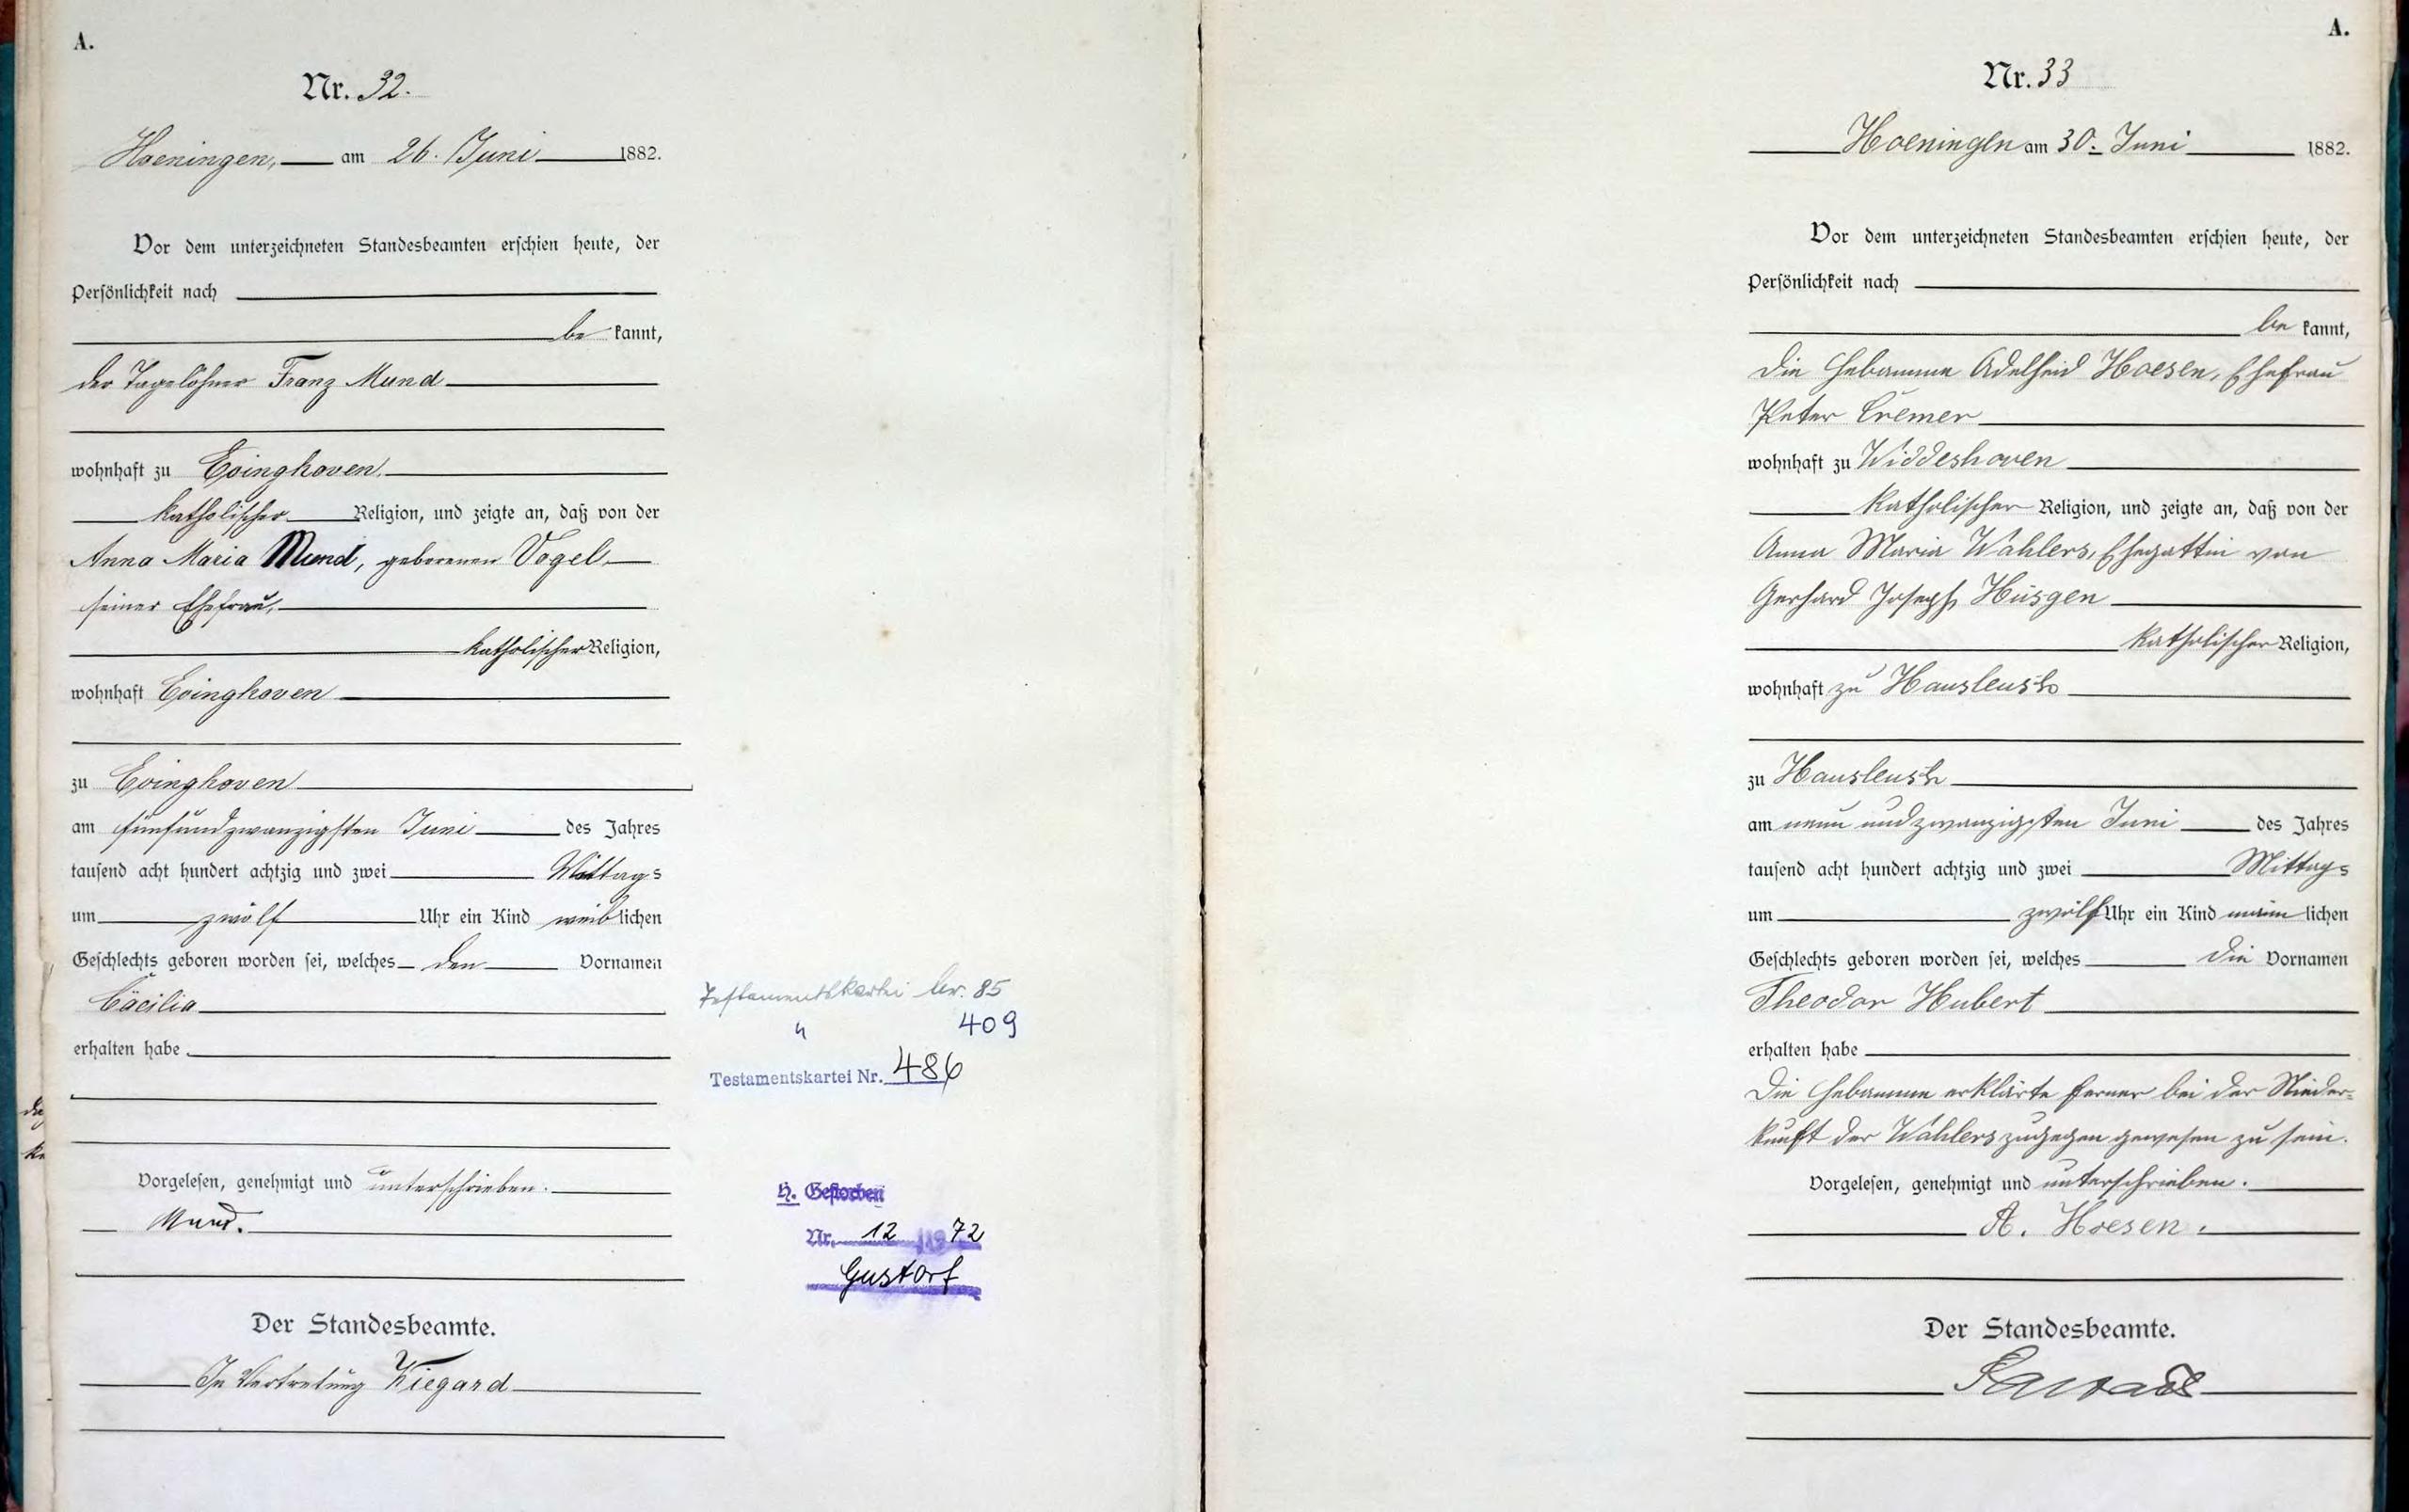 A.
Nr. 32.
Hoeningen, am 26. Juni 1882.
Vor dem unterzeichneten Standesbeamten erschien heute, der
Persönlichkeit nach
be kannt,
der Tagelöhner Franz Mund
wohnhaft zu Evinghoven.
katholischer Religion, und zeigte an, daß von der
Anna Maria Mund, geborenen Vogel
seiner Ehefrau,
katholischer Religion,
wohnhaft Evinghoven
zu Evinghoven
am fünfundzwanzigsten Juni des Jahres
tausend acht hundert achtzig und zwei Mittags
um zwölf Uhr ein Kind weiblichen
Geschlechts geboren worden sei, welches den Vornamen
Cäcilia
erhalten habe
Vorgelesen, genehmigt und unterschrieben.
Mund.
Der Standesbeamte.
In Vertretung Wiegard
Testamentskartei Nr. 85
" 409
Testamentskartei Nr. 486
H. Gestorben
Nr. 12 1972
Gustorf
A.
Nr. 33
Hoeningen am 30. Juni 1882.
Vor dem unterzeichneten Standesbeamten erschien heute, der
Persönlichkeit nach
be kannt,
die Hebamme Adelheid Hoesen, Ehefrau
Peter Cremer
wohnhaft zu Widdeshoven
katholischer Religion, und zeigte an, daß von der
Anna Maria Wahlers, Ehegattin von
Gerhard Joseph Hüsgen
katholischer Religion,
wohnhaft zu Hausleusch
zu Hausleusch
am neun und zwanzigsten Juni des Jahres
tausend acht hundert achtzig und zwei Mittags
um zwölf Uhr ein Kind männlichen
Geschlechts geboren worden sei, welches die Vornamen
Theodor Hubert
erhalten habe
Die Hebamme erklärte ferner bei der Nieder-
kunft der Wahlers zugegen gewesen zu sein.
Vorgelesen, genehmigt und unterschrieben.
A. Hoesen.
Der Standesbeamte.